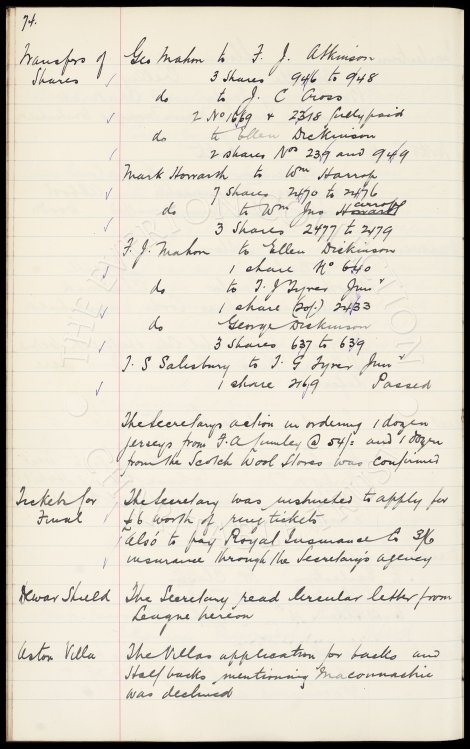 74.
Transfers of Geo Mahon to F. J. Atkinson
Shares 3 Shares 946 to 948
do to J. C Cross
2 No 1669 & 2318 fully paid
do to Ellen Dickinson
2 shares Nos 239 and 949
Mark Howarth to Wm Harrop
7 Shares 2470 to 2476
do to Wm Jno Howarth arrop
3 Shares 2477 to 2479
F. J. Mahon to Ellen Dickinson
1 share No 640
do to T. J Tyrer Junr
1 share (20/-) 2433
do George Dickinson
3 Shares 637 to 639
T. S Salisbury to T. G Tyrer Junr
1 share 2169 Passed
The Secretarys action in ordering 1 dozen
jerseys from F. A @ 54/= and 1 dozen
from the Scotch Wool Stores was confirmed
Tickets for The Secretary was instructed to apply for
Final £6 worth of ring tickets
Also to pay Royal Insurance Co 3/6
insurance through the Secretary's agency
Dewar Shield The Secretary read Circular letter from
League hereon
Aston Villa The Villas application for backs and
Half backs mentioning Maconnachie
was declined